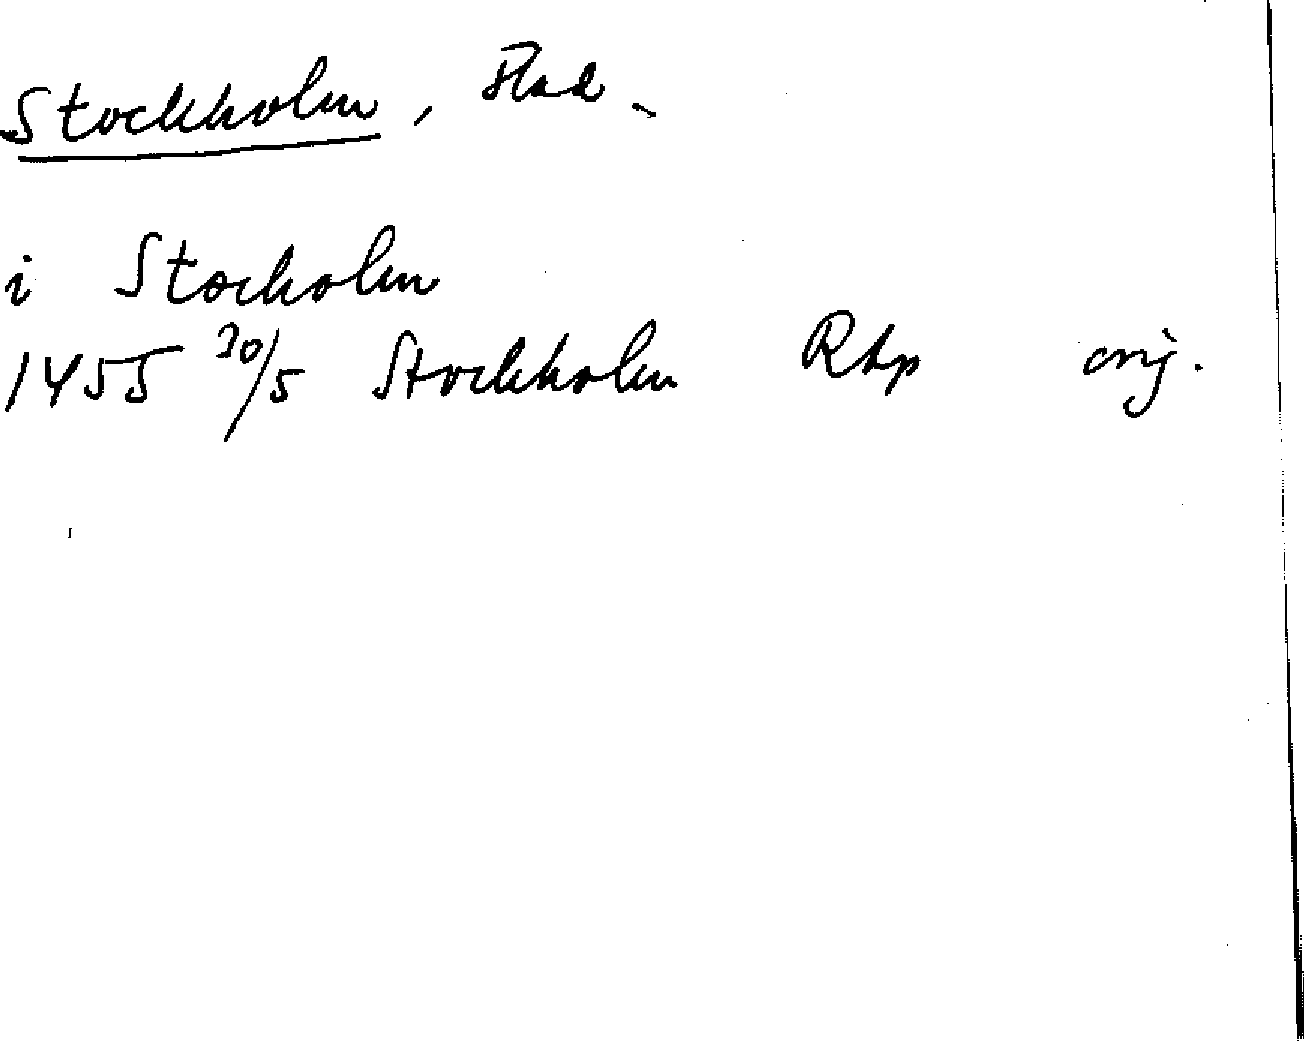 Stockholm, Stad.
i Stocholm
1455 30/5 Stockholm Rkp orig.